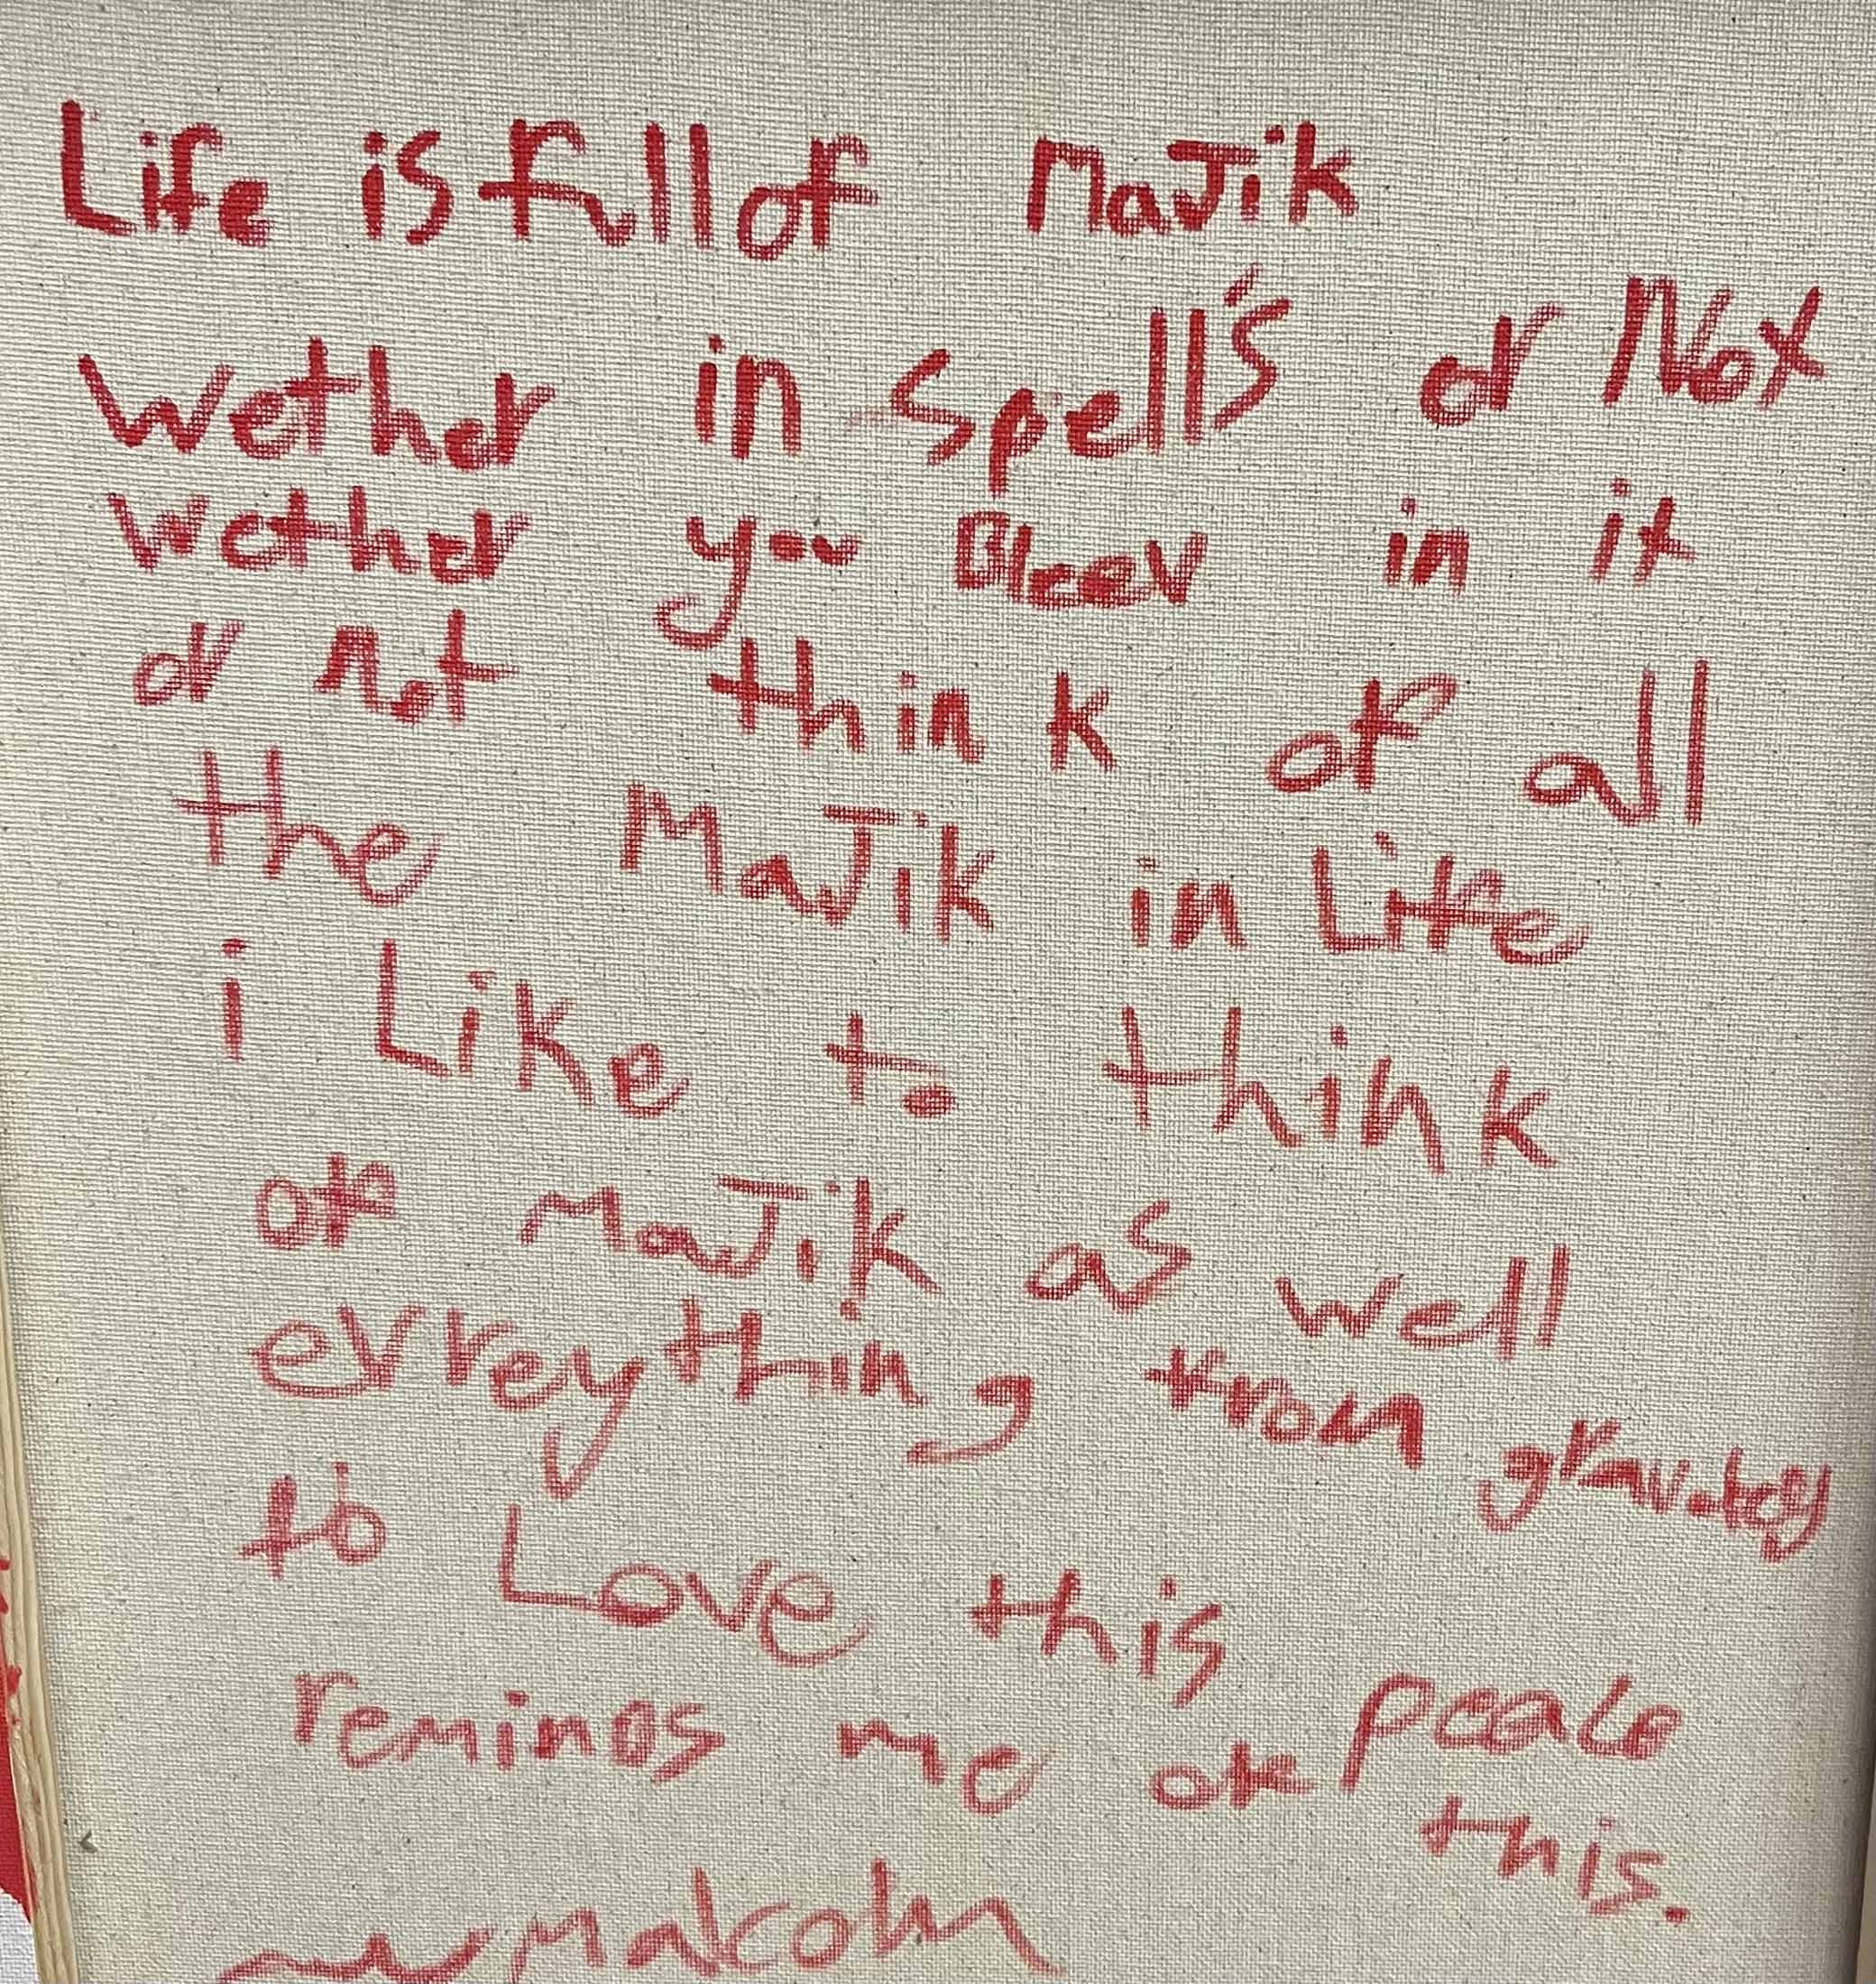 Life is full of MaJik
wether in spell's or Not
wether you Bleev in it
or not think of all
the MaJik in Life
i Like to think
of MaJik as well
evreything from gravitey
to Love this peace
reminds me of this.
~Malcolm